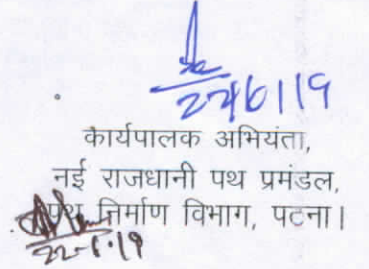 22/6/19
कार्यपालक अभियंता,
नई राजधानी पथ प्रमंडल,
पथ निर्माण विभाग, पटना।
22.6.19